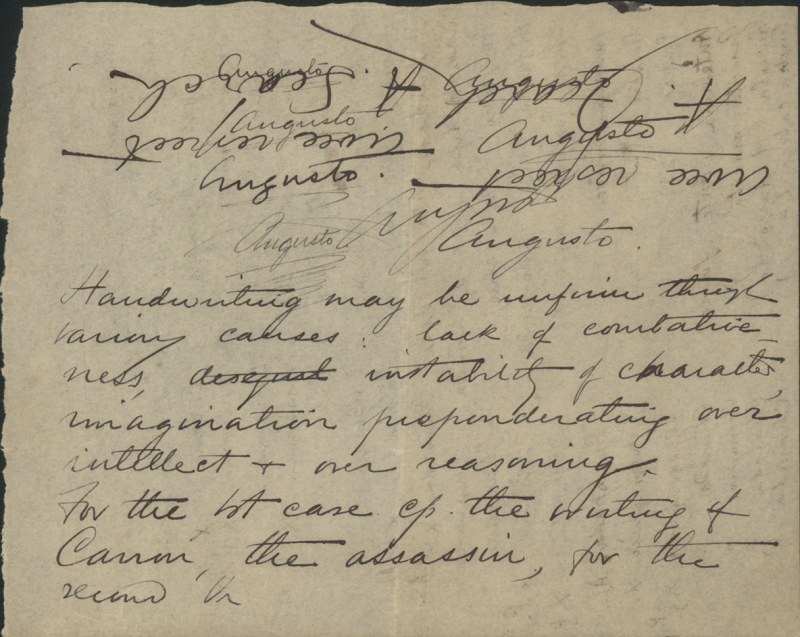 Augusto
A. Search.
A. Search
Augusto
Augusto
avec respect
avec respect
Augusto.
Augusto
Augusto.
Handwriting may be uniform through
various causes: lack of combative-
ness, desequil instability of character,
imagination preponderating over
intellect & over reasoning.
For the 1st case cp. the writing of
Carron, the assassin, for the
second the